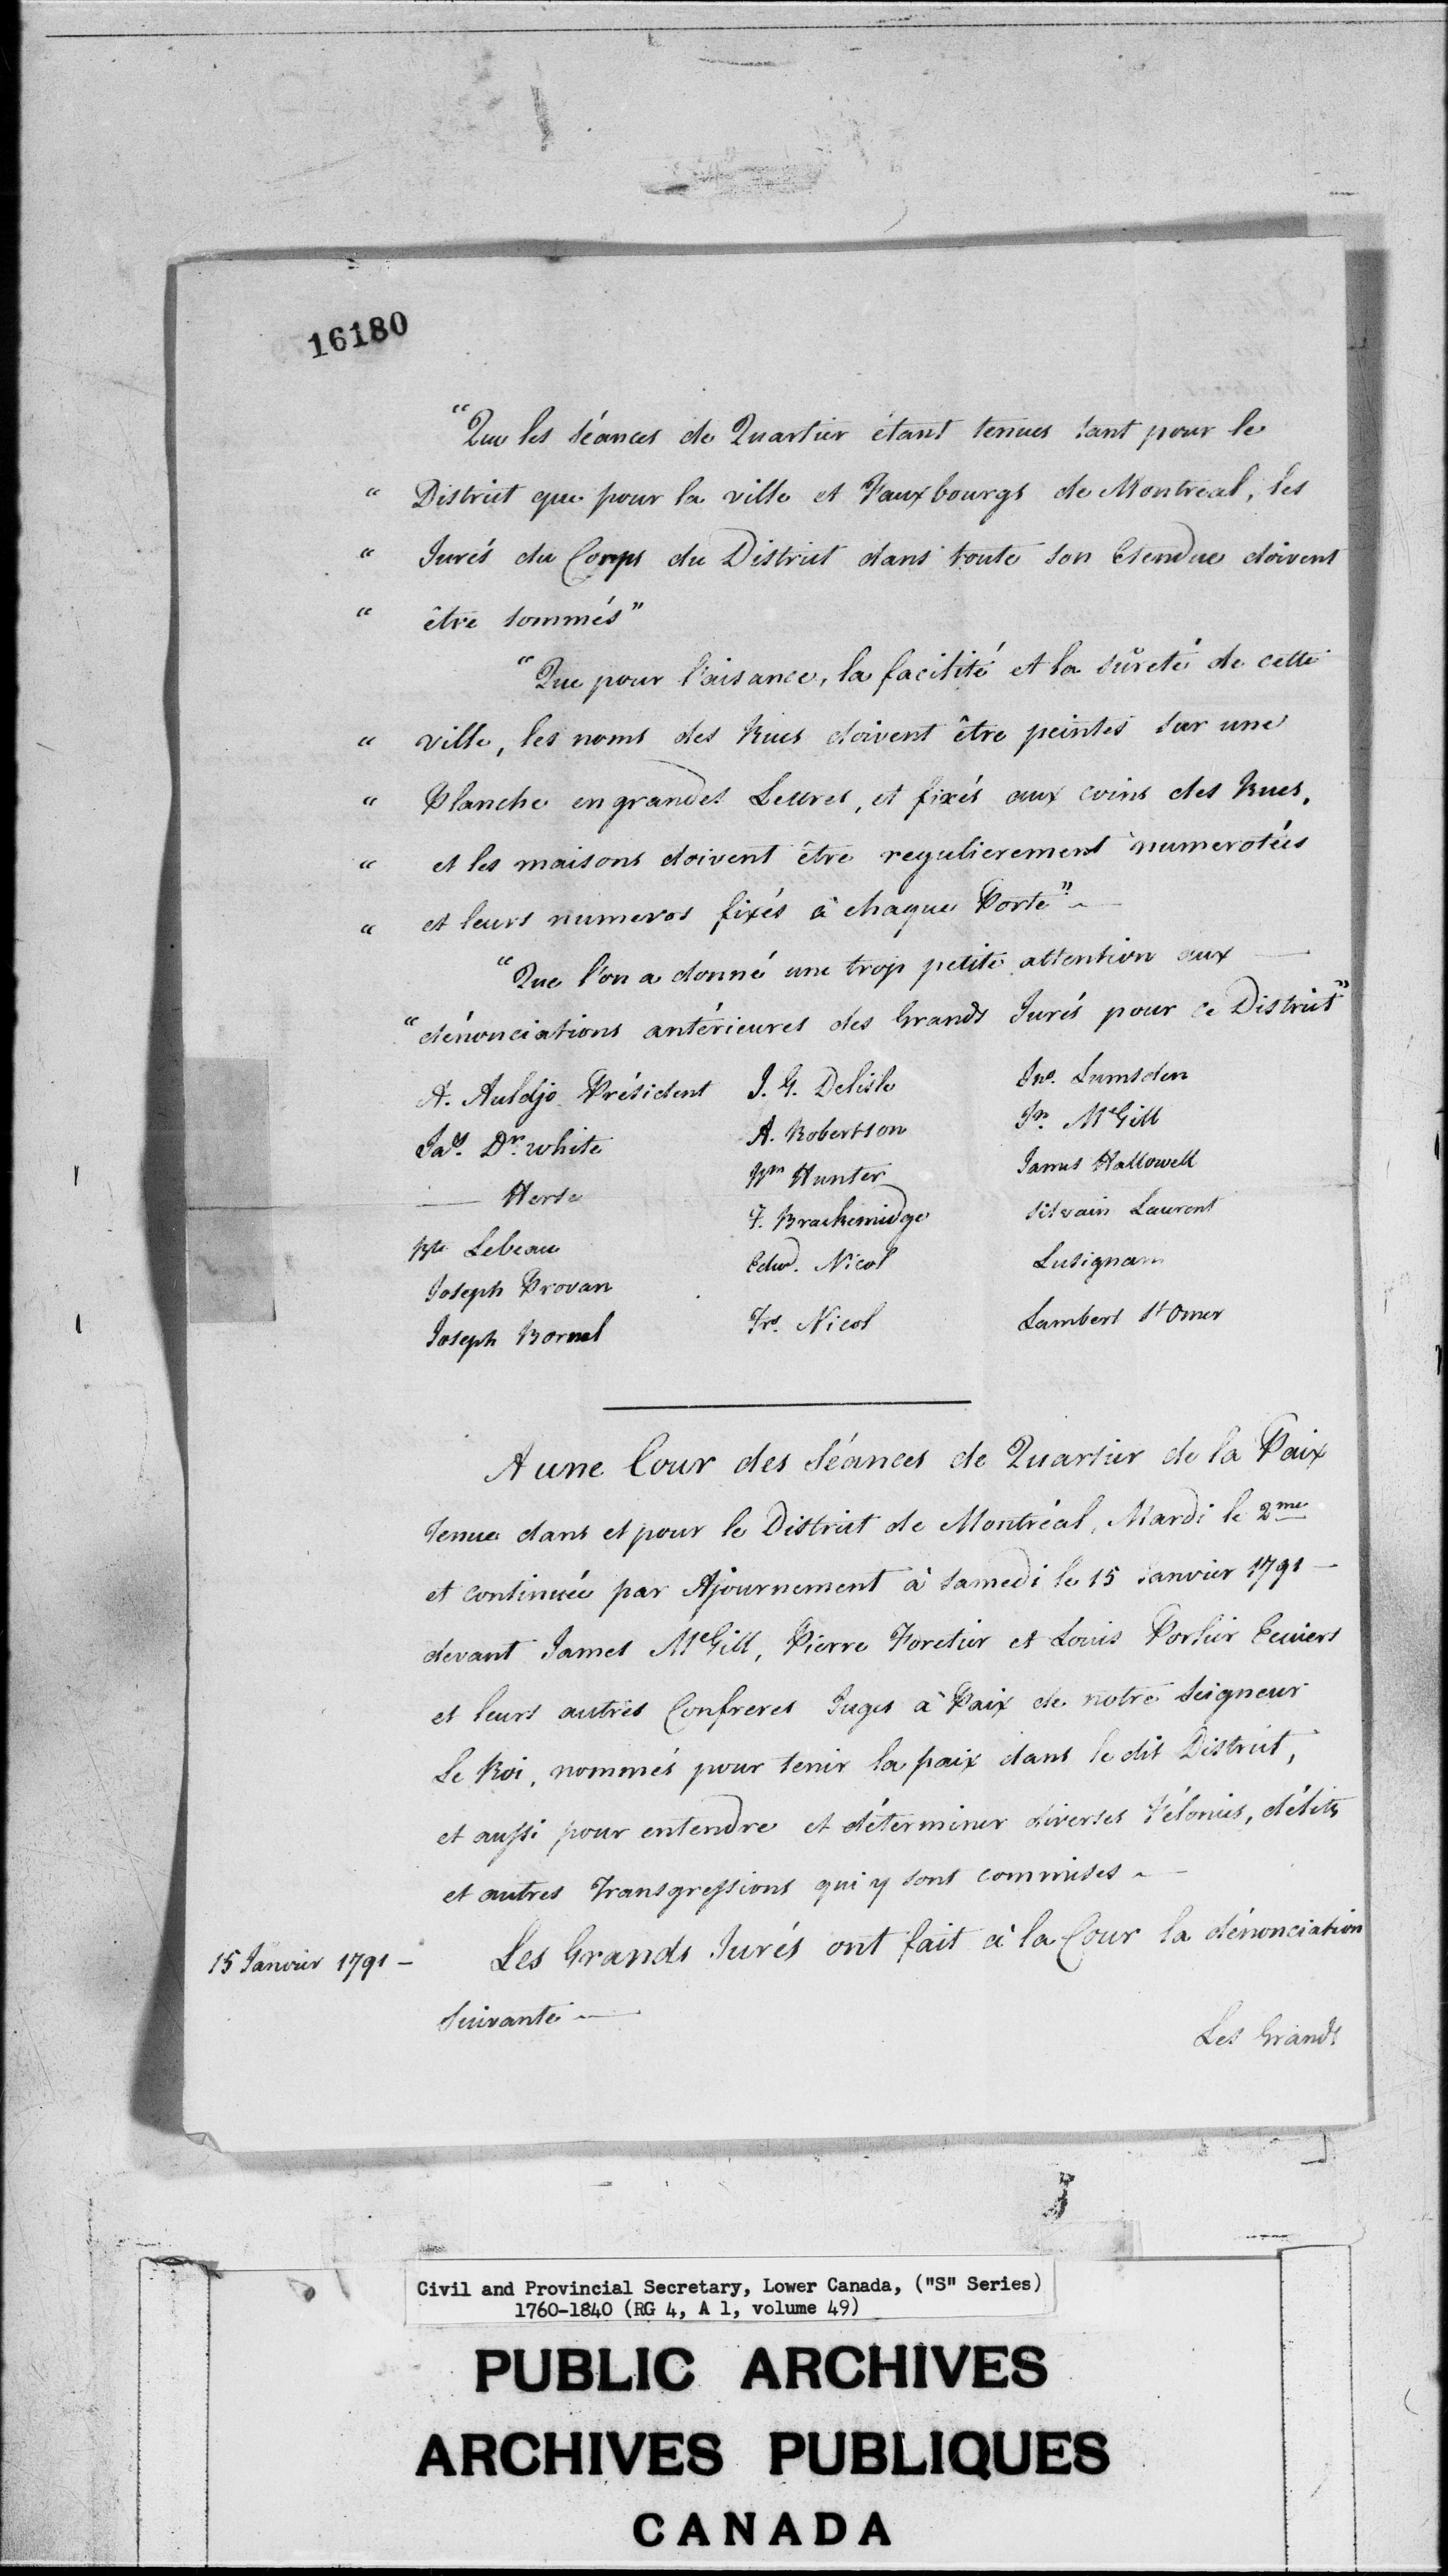 16180
“Que les séances de Quartier étant tenues tant pour le
“ District que pour la ville et Fauxbourgs de Montreal, les
“ Jurés du Corps du District dans toute son Etendue doivent
“ être sommés”
“Que pour l'aisance, la facilité et la sûreté de cette
“ ville, les noms des Rues doivent être peintes sur une
“ Planche en grandes Lettres, et fixés aux coins des Rues,
“ et les maisons doivent être regulierement numerotées
“ et leurs numeros fixés à chaque Porte” -
“Que l'on a donné une trop petite attention aux —
“dénonciations antérieures des Grands Jurés pour ce District”
A. Auldjo Président J. G. Delisle Jno. Lumsden
Jas. Dr. White A. Robertson Jn. McGill
— Herse Wm Hunter James Hallowell
Bte Lebeau F. Brackenridge Silvain Laurent
Joseph Provan Edwd. Nicol Lusignan
Joseph Bornel Frs. Nicol Lambert St Omer
A une Cour des séances de Quartier de la Paix
Tenue dans et pour le District de Montréal, Mardi le 2me
et continuée par Ajournement à Samedi le 15 Janvier 1791 —
devant James McGill, Pierre Foretier et Louis Portier Ecuiers
et leurs autres Confreres Juges à Paix de notre Seigneur
Le Roi, nommés pour tenir la paix dans le dit District,
et aussi pour entendre et déterminer diverses Félonies, délits
et autres Transgressions qui y sont commises -
15 Janvier 1791 — Les Grands Jurés ont fait à la Cour la dénonciation
Suivante —
Les Grands
Civil and Provincial Secretary, Lower Canada, ("S" Series)
1760-1840 (RG 4, A 1, volume 49)
PUBLIC ARCHIVES
ARCHIVES PUBLIQUES
CANADA